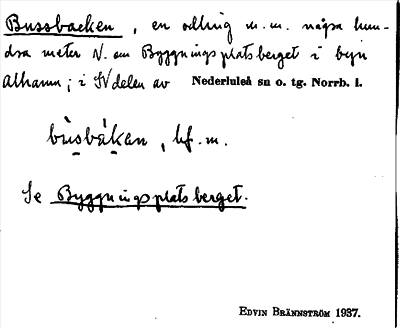 Bussbacken, en odling m.m. några hun-
dra meter N. om Byggningsplatsberget i byn
Alhamn; i SV delen av Nederluleå sn o. tg. Norrb. l.
bùsbáken, bf. m.
Se Byggningsplatsberget.
EDVIN BRÄNNSTRÖM 1937.